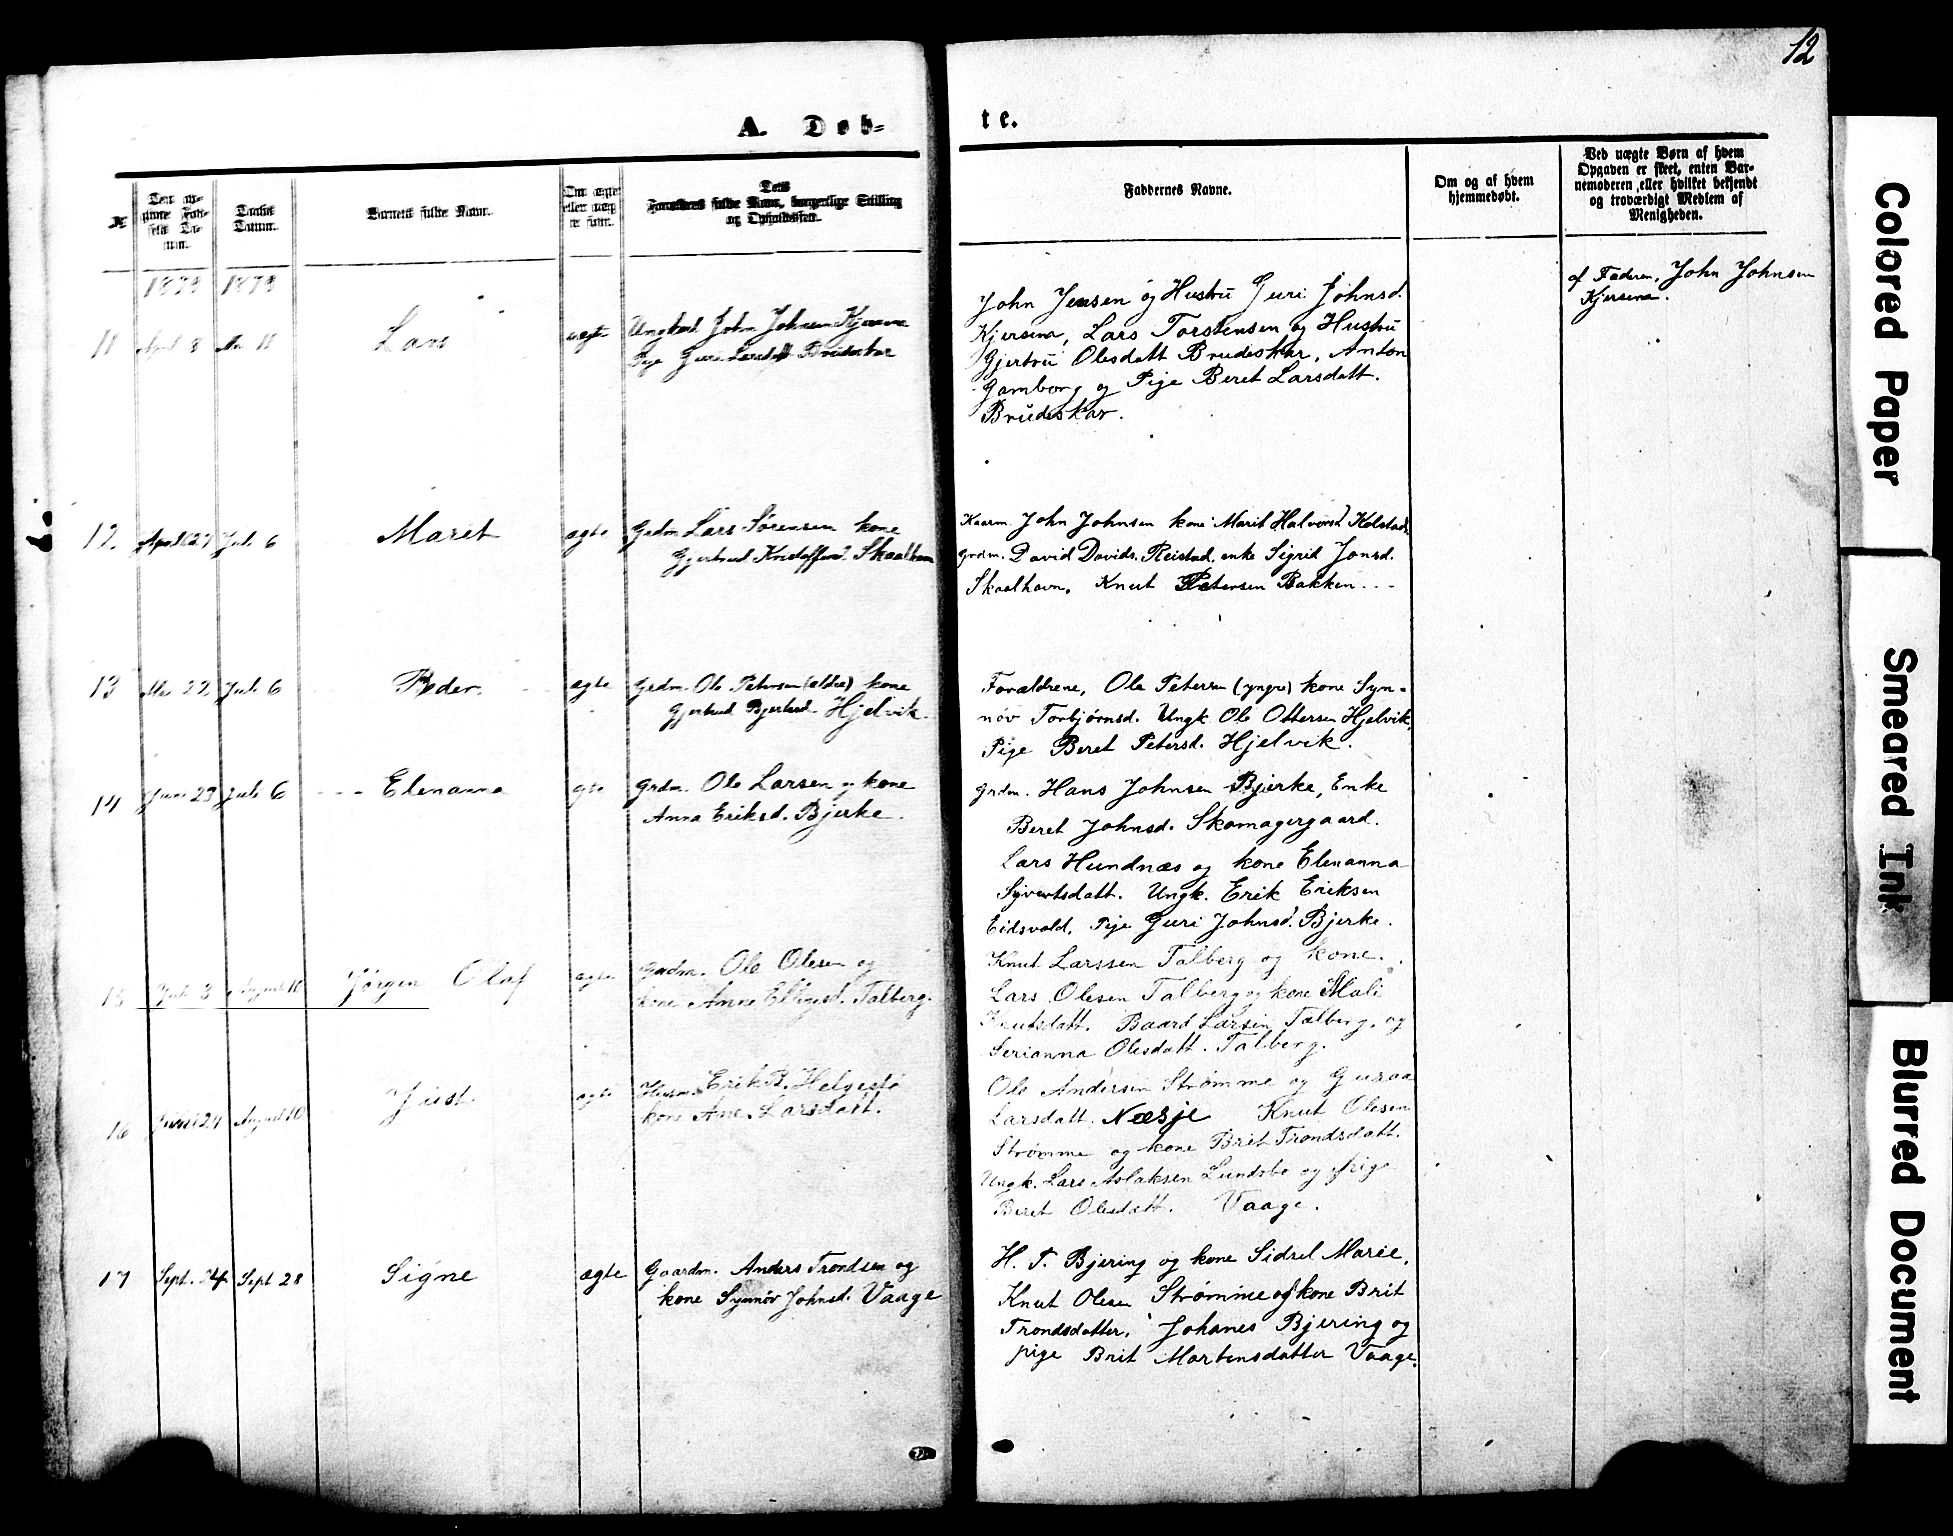 12
A. Døb-
te.
№
Den angivne Fødsels Datum.
Daabs Datum.
Barnets fulde Navn.
Om ægte eller uægte født.
Dets Forældres fulde Navn, borgerlige Stilling og Opholdssted.
Faddernes Navne.
Om og af hvem
hjemmedøbt.
Ved uægte Børn af hvem
Opgaven er skeet, enten Bar-
nemoderen, eller hvilket bekjendt
og troværdigt Medlem af
Menigheden.
1879 1879
11 April 8 Mai 11 Lars uægte Ungkarl John Johnsen Kjersena
Pige Guri Larsdatt Brudeskar
John Jensen og Hustrü Guri Johnsd.
Kjersena, Lars Torstensen og Hustrü
Gjertrü Olesdatt Brudeskar, Anton
Gamborg og Pige Beret Larsdatt.
Brüdeskar.
af Faderen, John Johnsen
Kjersena.
12. April 27 Juli 6 Maret ægte Grdm Lars Sørensen kone
Gjertrud Kristoffersd. Skaalhavn
Kaarm. John Johnsen kone Marit Halvorsd. Kolstad,
Grdm. David Davids. Reistad, enke Sigrid Jonsd.
Skaalhavn. Knut Petersen Bakken ---
13 Mai 22 Juli 6 Peder. ægte Grdm. Ole Petersen (ældre) kone
Gjertrud Bjerksd. Hjelvik.
Forældrene, Ole Petersen (yngre) kone Syn-
növ Torbjörnsd. Ungk Ole Ottersen Hjelvik,
Pige Beret Petersd. Hjelvik.
14 Juni 23 Juli 6 --- Elenanna ægte Grdm. Ole Larsen og kone
Anna Eriksd. Bjerke.
Grdm. Hans Johnsen Bjerke, Enke
Beret Johnsd. Skomagergaard.
Lars Hundnæs og kone Elenanna
Syvertsdatt. Ungk. Erik Eriksen
Eidsvold, Pige Guri Johnsd. Bjerke.
15 Juli 3 August 10 Jørgen Olaf ægte Gadm. Ole Olesen og
kone Anne Ellingsd. Talberg.
Knut Larssen Talberg og kone.
Lars Olesen Talberg og kone Mali
Knutsdatt. Baard Larsen Talberg, og
Serianna Olesdatt. Talberg.
16 Juni 24 August 10 Just. ægte Husm. Erik B. Helgestø
kone Ane Larsdatt.
Ole Andersen Strømme og Guroa
Larsdatt. Næsje Knut Olesen
Strømme og kone Brit Trondsdatt.
Ungk. Lars Aslaksen Lundsbø og pige
Beret Olesdatt. Vaage.
17 Sept. 24 Sept 28 Signe ægte Gaardm. Anders Trondsen og
kone Synnöv Johnsd. Vaage
H. T. Bjering og kone Sidsel Marie,
Knut Olesen Strømme og kone Brit
Trondsdatter, Johanes Bjering og
pige Brit Martensdatter Vaage.
Colored Paper
Smeared Ink
Blurred Document